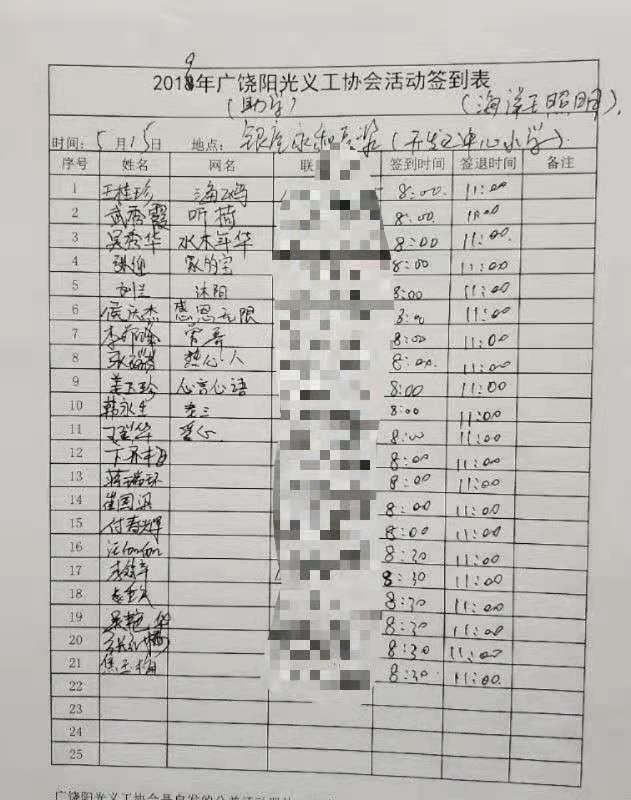 2019年广饶阳光义工协会活动签到表
(助学) (海洋王照明)
时间: 5月15日 地点: 银座永和豆浆(开发区中心小学)
序号 姓名 网名 联 签到时间 签退时间 备注
1 王桂珍 海鸥 8:00 11:00
2 武秀霞 听荷 8:00 11:00
3 吴秀华 水木年华 8:00 11:00
4 8:00 11:00
5 刘兰 沐阳 8:00 11:00
6 侯庆杰 感恩无限 8:00 11:00
7 8:00 11:00
8 热心人 8:00 11:00
9 姜玉珍 心言心语 8:00 11:00
10 韩永生 老三 8:00 11:00
11 爱心 8:00 11:00
12 8:00 11:00
13 蒋瑞环 8:00 11:00
14 崔国 8:00 11:00
15 付春辉 8:00 11:00
16 8:30 11:00
17 8:30 11:00
18 8:30 11:00
19 吴艳华 8:30 11:00
20 8:30 11:00
21 焦玉梅 8:30 11:00
22
23
24
25